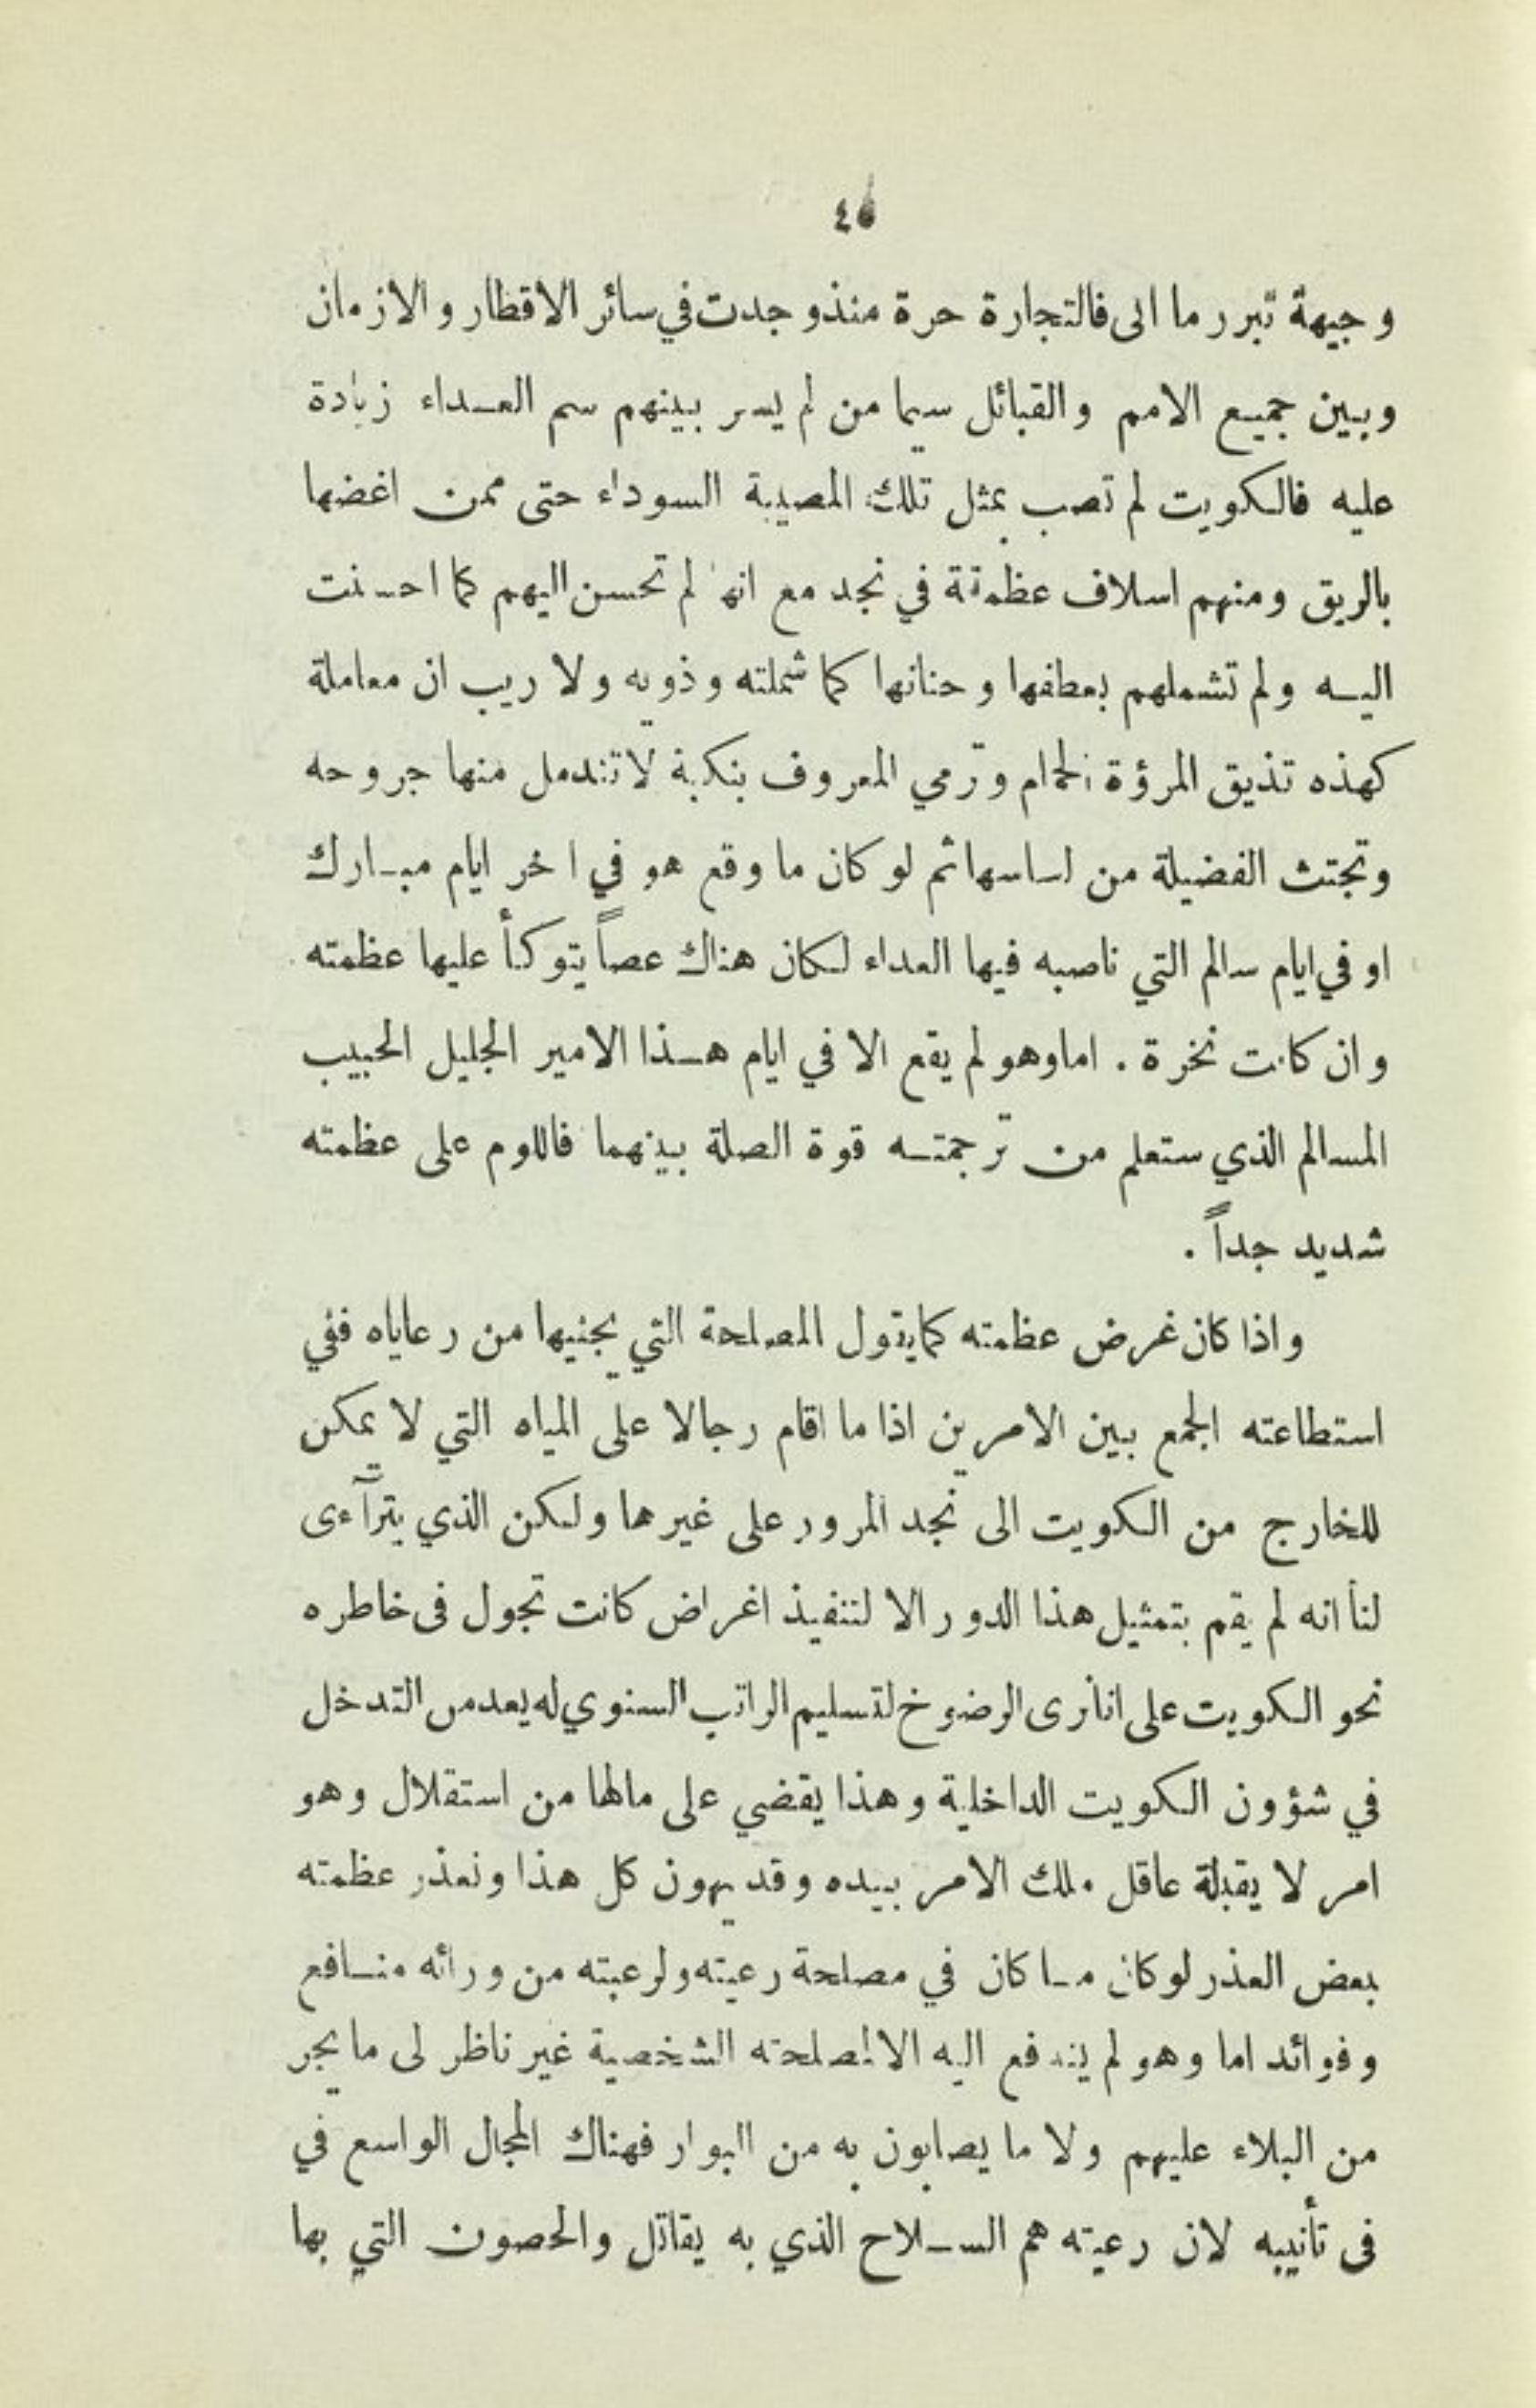 ٤٥
وجيهة تبرر ما اتى فالتجارة حرة منذ وجدت في سائر الاقطار والازمان
وبين جميع الامم والقبائل سيما من لم يسر بينهم سم العداء زيادة
عليه فالكويت لم تصب بمثل تلك المصيبة السوداء حتى ممن اغضها
بالريق ومنهم اسلاف عظمته في نجد مع انها لم تحسن اليهم كما احسنت
اليه ولم تشملهم بعطفها وحنانها كما شملته وذويه ولا ريب ان معاملة
كهذه تذيق المرؤة الحمام وترمي المعروف بنكبة لا تندمل منها جروحه
وتجتث الفضيلة من اساسها ثم لو كان ما وقع هو في اخر ايام مبارك
او في ايام سالم التي ناصبه فيها العداء لكان هناك عصاً يتوكأ عليها عظمته
وان كانت نخرة . اما وهو لم يقع الا في ايام هذا الامير الجليل الحبيب
المسالم الذي ستعلم من ترجمته قوة الصلة بينهما فاللوم على عظمته
شديد جداً .
واذا كان غرض عظمته كما يقول المصلحة التي يجنيها من رعاياه ففي
استطاعته الجمع بين الامرين اذا ما اقام رجالا على المياه التي لا يمكن
للخارج من الكويت الى نجد المرور على غيرها ولكن الذي يترآءى
لنا انه لم يقم بتمثيل هذا الدور الا لتنفيذ اغراض كانت تجول فى خاطره
نحو الكويت على انا نرى الرضوخ لتسليم الراتب السنوي له يعد من التدخل
في شؤون الكويت الداخلية وهذا يقضي على مالها من استقلال وهو
امر لا يقبلة عاقل ملك الامر بيده وقد يهون كل هذا ونعذر عظمته
بعض العذر لو كان ما كان في مصلحة رعيته ولرعيته من ورائه منافع
وفوائد اما وهو لم يندفع اليه الا لمصلحته الشخصية غير ناظر لى ما يجر
من البلاء عليهم ولا ما يصابون به من البوار فهناك المجال الواسع في
فى تأنيبه لان رعيته هم السلاح الذي به يقاتل والحصون التي بها